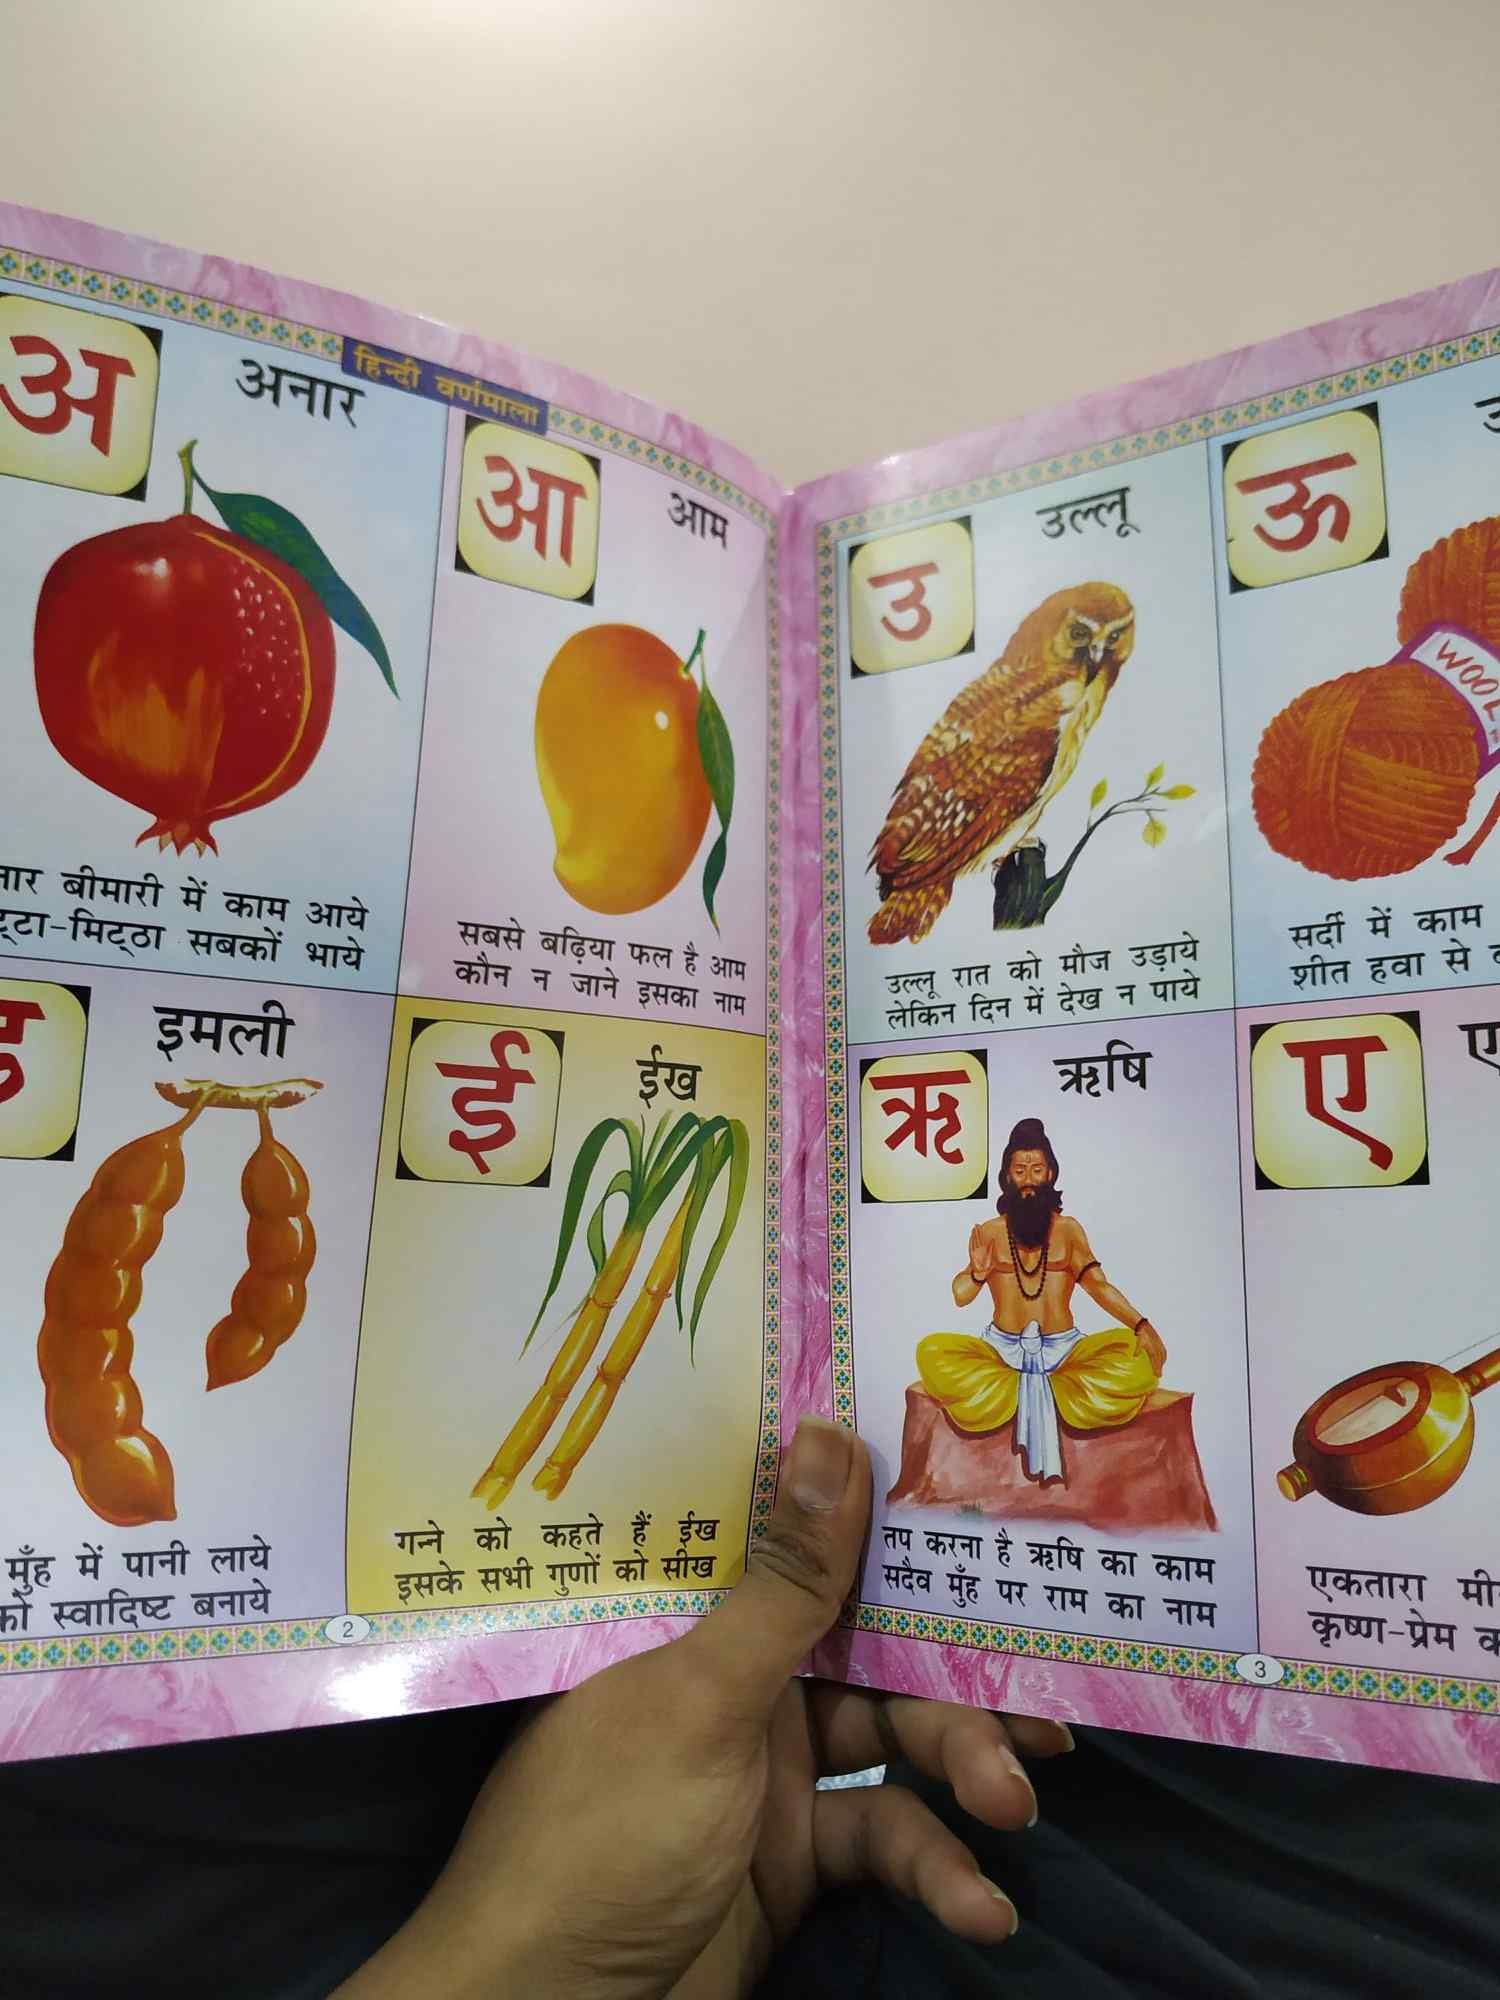 हिन्दी वर्णमाला
अ
अनार
बीमारी में काम आये
सबकों भाये
आ
आम
सबसे बढ़िया फल है आम
कौन न जाने इसका नाम
इमली
मुँह में पानी लाये
स्वादिष्ट बनाये
ई
ईख
गन्ने को कहते हैं ईख
इसके सभी गुणों को सीख
2
उ
उल्लू
उल्लू रात को मौज उड़ाये
लेकिन दिन में देख न पाये
ऊ
WOOL
सर्दी में काम
शीत हवा से
ऋ
ऋषि
तप करना है ऋषि का काम
सदैव मुँह पर राम का नाम
ए
एकतारा
कृष्ण-प्रेम
3